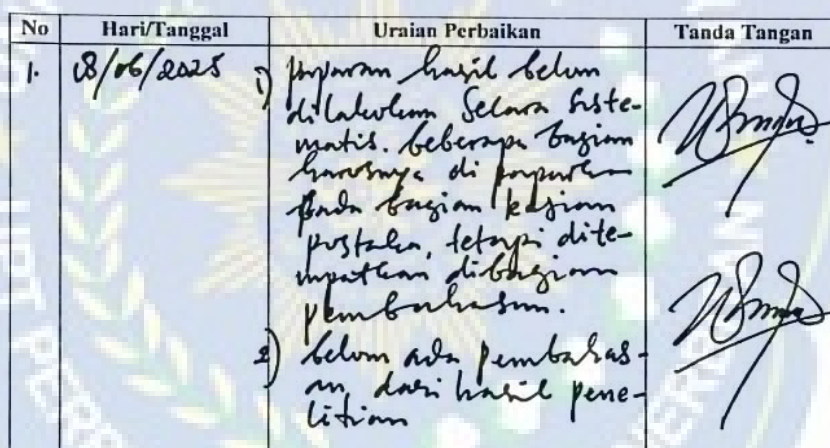 No Hari/Tanggal Uraian Perbaikan Tanda Tangan
1. 08/06/2025 1) paparan hasil belum
dilakukan secara siste-
matis. beberapa bagian
harusnya di paparkan
pada bagian kajian
pustaka, tetapi dite-
mpatkan dibagian
pembahasan.
2) belum ada pembahas-
an dari hasil pene-
litian